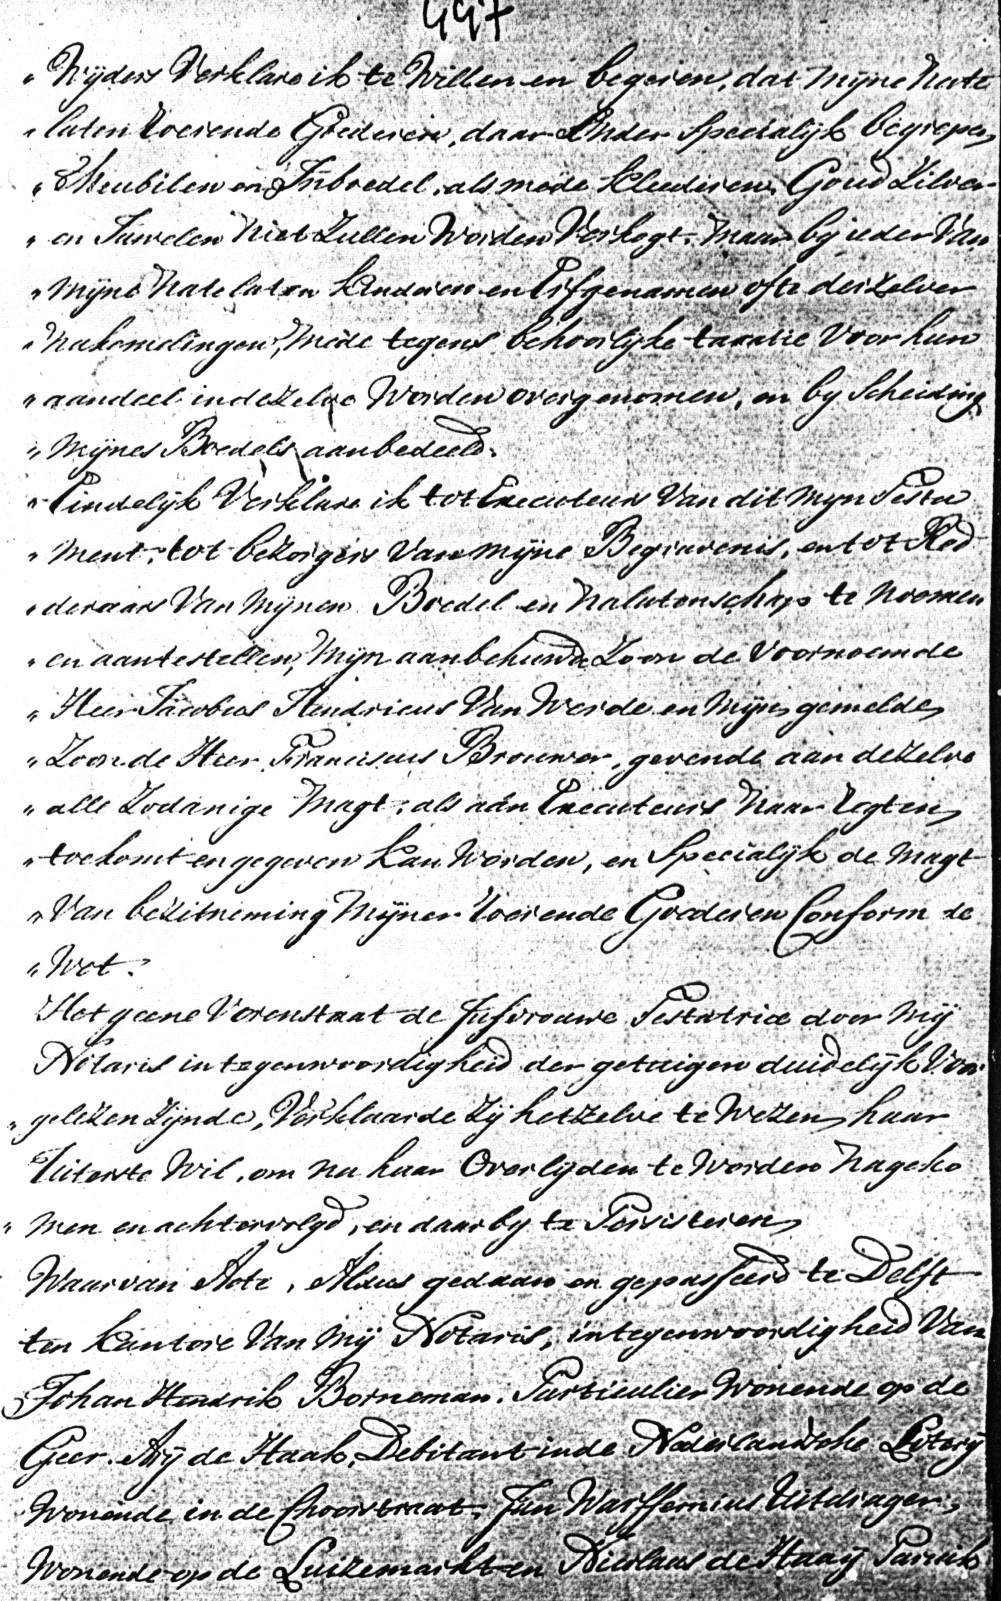 997
„ Wijders Verklare ik te Willen en begeren, dat Mijne Nate
„ laten Roerende Goederen, daar Onder Specialijk begrepen
„ Meubilen en Inboedel, als mede kleederen, Goud Zilver
„ en Juwelen Niet Zullen Worden Verkogt. Maar bij ieder Van
„ Mijne Natelaten kinderen en Erfgenamen ofte derzelver
„ Nakomelingen, Mede tegens behoorlijke taxatie Voor hun
„ aandeel in dezelve Worden overgenomen, en by Scheiding
„ Mijnes Boedels aanbedeeld.
„ Eindelijk Verklare ik tot Executeurs Van dit Mijn Testa
„ Ment, tot bezorgers Van Mijne Begravenis, en tot Red
„ deraars Van Mijnen Boedel en Nalatenschap te Noemen
„ en aantestellen, Mijn aanbehuwde Zoon de Voornoemde
„ Heer Jacobus Hendricus Van Werde en Mijn gemelde
„ Zoon de Heer Franciscus Brouwer, gevende aan dezelve
„ alle Zodanige Magt, als aan Executeurs Naar Regten
„ toekomt en gegeven kan Worden, en Specialijk de Magt
„ Van bezitneming Mijner Roerende Goederen Conform de
„ Wet.
Hetgeene Vorenstaat de Jufvrouwe Testatrice door Mij
Notaris in tegenwoordigheid der getuigen duidelijk Voor
„ gelezen Zijnde, Verklaarde Zij hetzelve te Wezen haar
Uiterste Wil, om Na haar Overlyden te Worden Nageko
„ Men en achtervolgd, en daarby te Persisteren
Waarvan Acte, Aldus gedaan en gepasseerd te Delft
ten kantore Van Mij Notaris, in tegenwoordigheid Van
Johan Hendrik Borneman, Particulier Wonende op de
Geer, Arij de Haak, Debitant in de Nederlandsche Loterij
Wonende in de Choorstraat, Jan Warffernius Uitdrager,
Wonende op de Luizemarkt en Nicolaas de Haaij